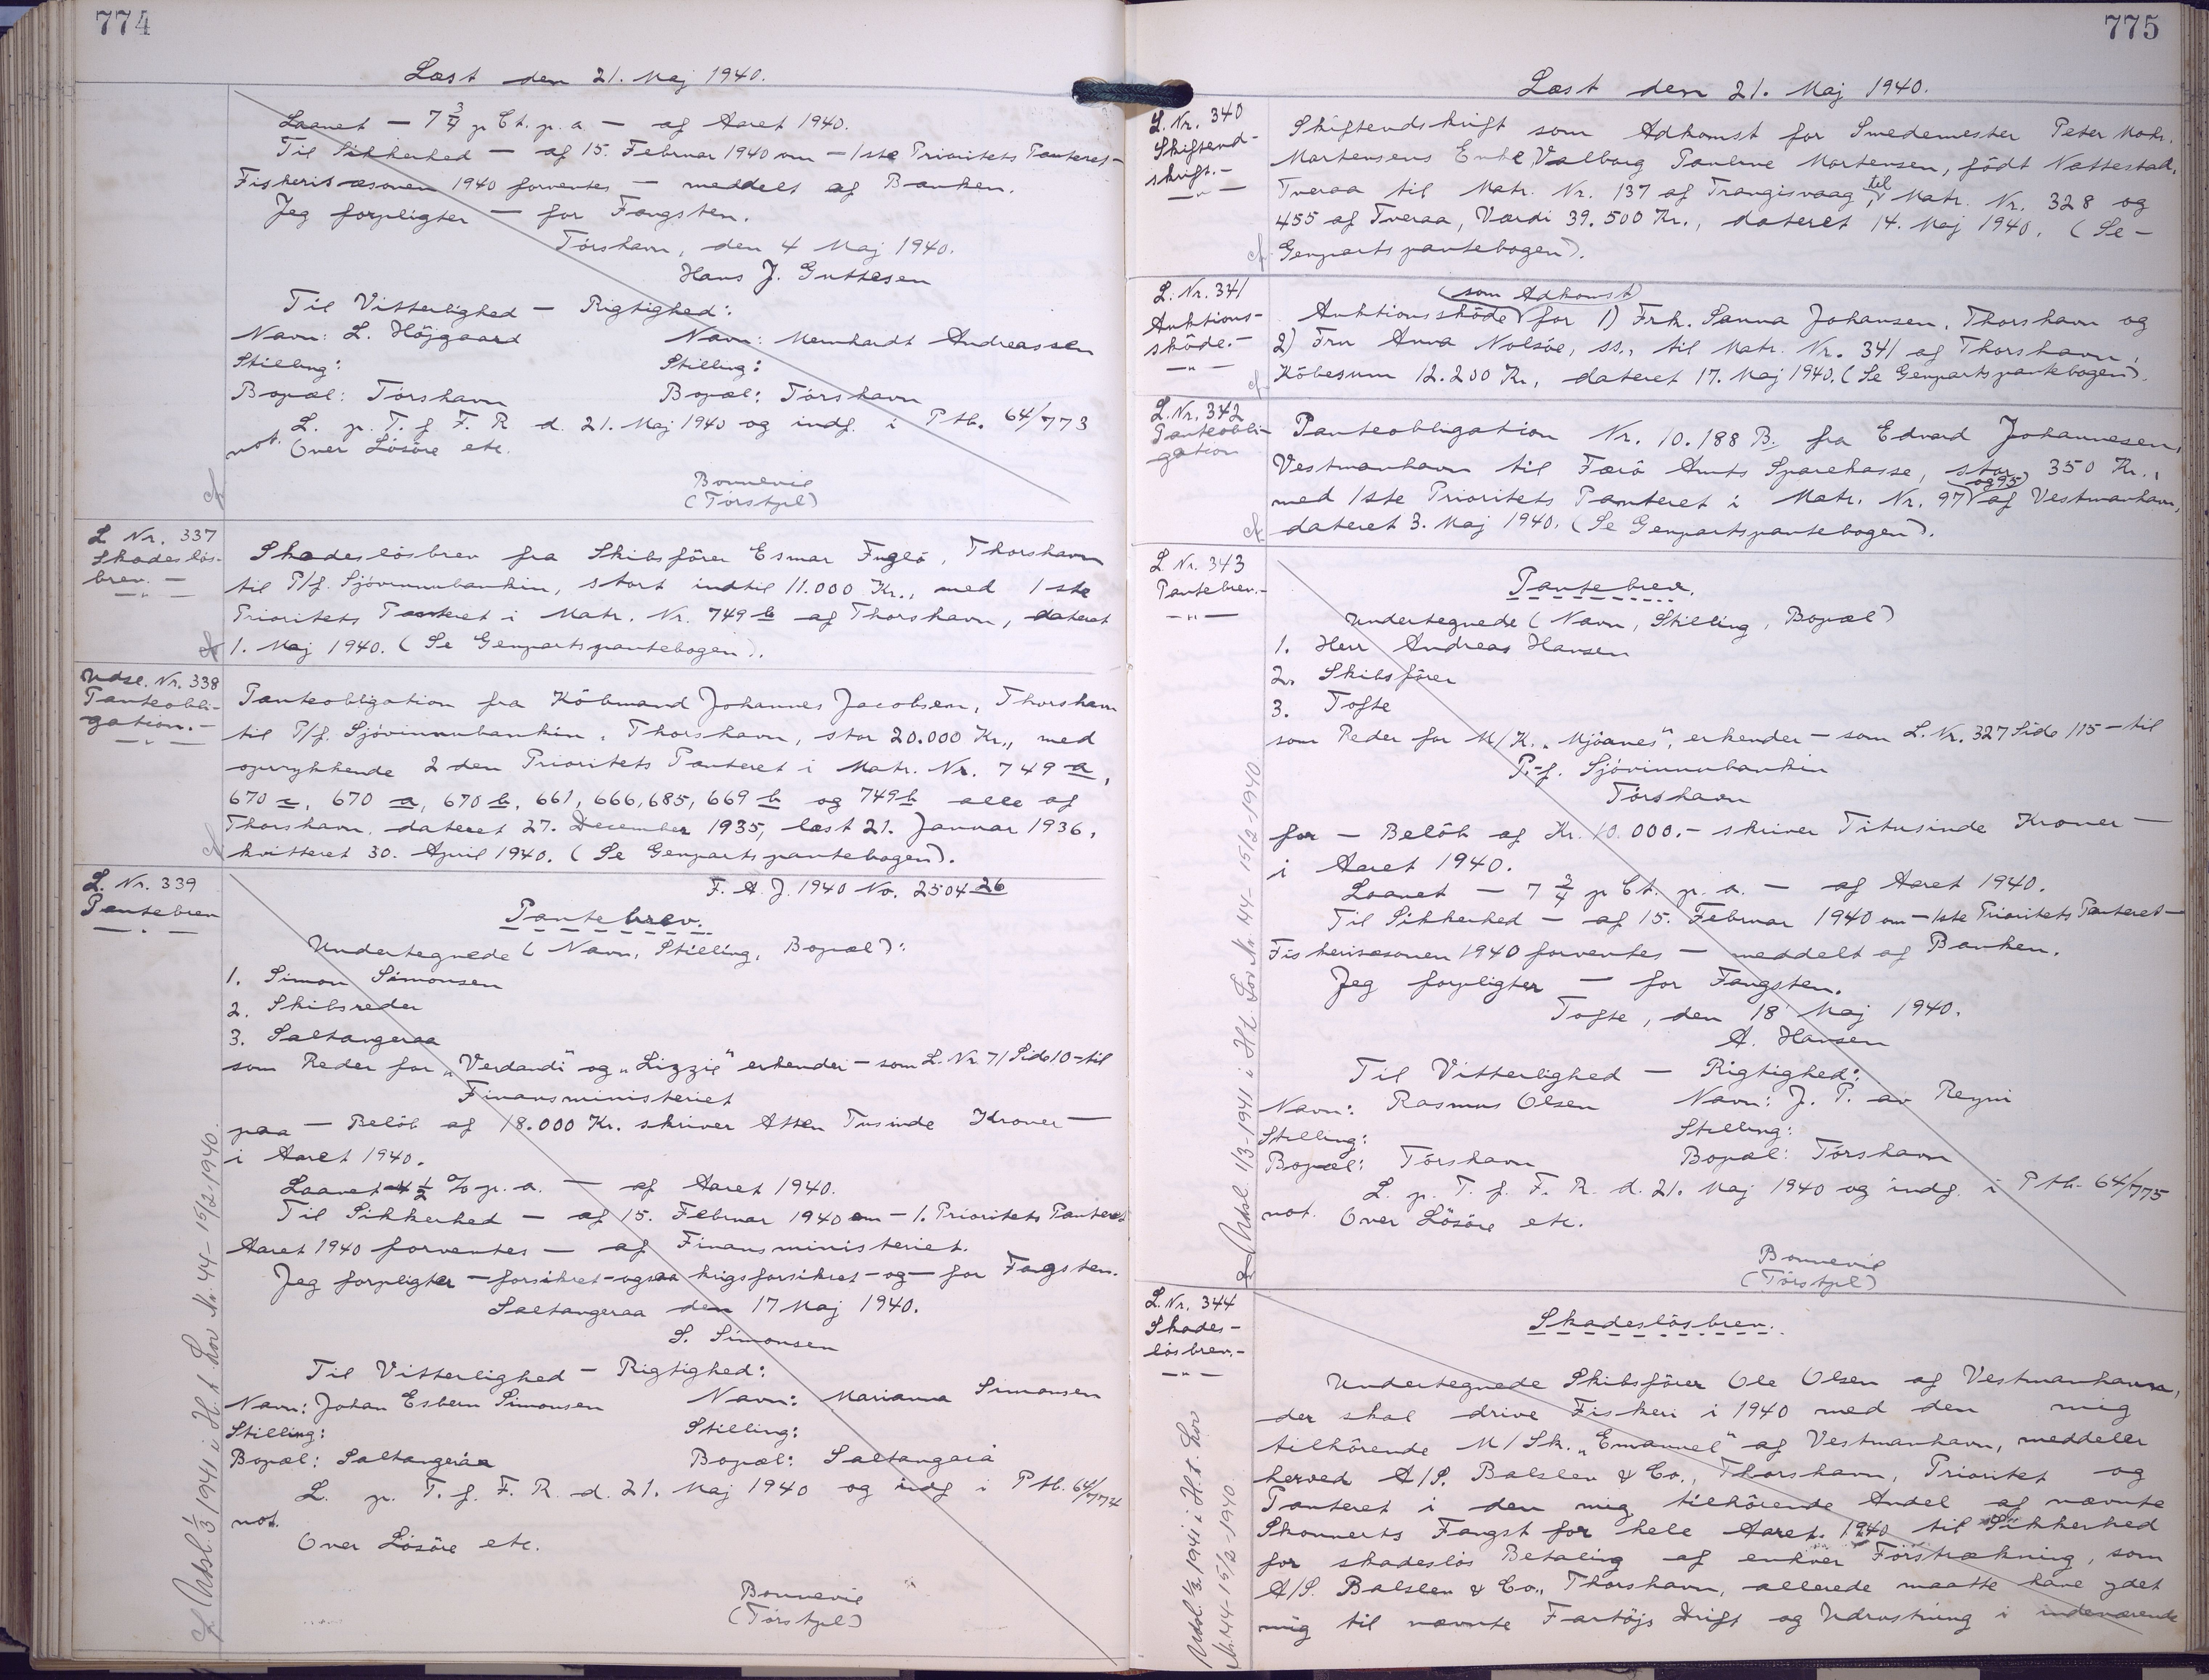 774
Læst den 21. Maj 1940.
Laanet — 7 3/4 p Ct. p. a. — af Aaret 1940.
Til Sikkerhed — af 15. Februar 1940 om — 1ste Prioritets Panteret —
Fiskerisæsonen 1940 forventes — meddelt af Banken.
Jeg forpligter — for Fangsten.
Tórshavn, den 4 Maj 1940.
Hans J. Guttesen
Til Vitterlighed — Rigtighed:
Navn: L. Höjgaard Navn: Meinhardt Andreassen
Stilling: Stilling:
Bopæl: Tórshavn Bopæl: Tórshavn
L. p. T. f. F. R d. 21. Maj 1940 og indf. i Ptb. 64/773
not. Over Lösöre etc.
Bonnevie
(Tórstpl)
L Nr. 337
Skadeslös-
brev. —
— " —
Skadeslösbrev fra Skibsförer Esmar Fuglö, Thorshavn
til P/f. Sjóvinnubankin, stort indtil 11.000 Kr., med 1ste
Prioritets Panteret i Matr. Nr. 749 b af Thorshavn, dateret
1. Maj 1940. (Se Genpartspantebogen).
Udsl. Nr. 338
Panteobli-
gation. —
— " —
Panteobligation fra Köbmand Johannes Jacobsen, Thorshavn
til P/f. Sjóvinnubankin, Thorshavn, stor 20.000 Kr., med
oprykkende 2den Prioritets Panteret i Matr. Nr. 749 a,
670 c, 670 a, 670 b, 661, 666, 685, 669 b og 749 b alle af
Thorshavn, dateret 27. December 1935, læst 21. Januar 1936,
kvitteret 30. April 1940. (Se Genpartspantebogen).
L. Nr. 339
Pantebrev
— " —
F. A. J. 1940 No. 2504 26
Pantebrev.
Undertegnede (Navn, Stilling, Bopæl):
1. Simon Simonsen
2. Skibsreder
3. Saltangeraa
som Reder for „Verdandi" og „Lizzie" erkender — som L. Nr 71 Side 10 — til
Finansministeriet
paa — Belöb af 18.000 Kr. skriver Atten Tusinde Kroner —
i Aaret 1940.
Laanet 4 1/2 % p. a. — af Aaret 1940.
Til Sikkerhed — af 15. Februar 1940 om — 1. Prioritets Panteret
Aaret 1940 forventes — af Finansministeriet.
Jeg forpligter — forsikret — ogsaa krigsforsikret — og — for Fangsten.
Saltangeraa den 17 Maj 1940.
S. Simonsen
Til Vitterlighed — Rigtighed:
Navn: Johan Esbern Simonsen Navn: Marianna Simonsen
Stilling: Stilling:
Bopæl: Saltangeráa Bopæl: Saltangará
L. p. T. f. F. R. d. 21. Maj 1940 og indf i Ptb. 64/774
not.
Over Lösöre etc.
Bonnevie
(Tórstpl)
Udsl. 1/3 1941 i H. t. Lov Nr. 44 - 15/2 1940.
775
Læst den 21. Maj 1940.
L. Nr. 340
Skifteud-
skrift. —
— " —
Skifteudskrift som Adkomst for Smedemester Peter Mohr
Mortensens Enke, Valborg Pauline Mortensen, födt Nattestad,
Tveraa til Matr. Nr. 137 af Trangisvaag, til Matr. Nr. 328 og
455 af Tveraa, Værdi 39.500 Kr., dateret 14. Maj 1940. (Se —
Genpartspantebogen).
L. Nr. 341
Auktions-
sköde. —
— " —
(som Adkomst)
Auktionssköde for 1) Frk. Sanna Johansen, Thorshavn og
2) Fru Anna Nolsöe, ss., til Matr. Nr. 341 af Thorshavn,
Köbesum 12.200 Kr., dateret 17. Maj 1940. (Se Genpartspantebogen).
L. Nr. 342
Panteobli-
gation
Panteobligation Nr. 10.188 B. fra Edvard Johannesen,
Vestmanhavn til Færö Amts Sparekasse, stor 350 Kr.,
med 1ste Prioritets Panteret i Matr. Nr. 97 og 95 af Vestmanhavn,
dateret 3. Maj 1940. (Se Genpartspantebogen).
L Nr. 343
Pantebrev. —
— " —
Pantebrev.
Undertegnede (Navn, Stilling, Bopæl)
1. Herr Andreas Hansen
2. Skibsförer
3. Tofte
som Reder for M/K. „Mjóanes", erkender — som L. Nr. 327 Side 115 — til
P.-f. Sjóvinnubankin
Tórshavn
for — Belöb af Kr. 10.000.- skriver Titusinde Kroner —
i Aaret 1940.
Laanet — 7 3/4 p Ct. p. a. — af Aaret 1940.
Til Sikkerhed — af 15. Februar 1940 om — 1ste Prioritets Panteret —
Fiskerisæsonen 1940 forventes — meddelt af Banken.
Jeg forpligter — for Fangsten.
Tofte, den 18 Maj 1940.
A. Hansen
Til Vitterlighed — Rigtighed:
Navn: Rasmus Olsen Navn: J. P. av Reyni
Stilling: Stilling:
Bopæl: Tórshavn Bopæl: Tórshavn
L. p. T. f. F. R. d. 21. Maj 1940 og indf. i Ptb. 64/775
not. Over Lösöre etc.
Bonnevie
(Tórstpl)
Udsl. 1/3 - 1941 i H.t. Lov Nr 44 - 15/2 - 1940
L. Nr. 344
Skades-
lösbrev. —
— " —
Skadeslösbrev.
Undertegnede Skibsförer Ole Olsen af Vestmanhavn,
der skal drive Fiskeri i 1940 med den mig
tilhörende M/Sk. „Emanuel" af Vestmanhavn, meddeler
herved A/S. Balslev & Co., Thorshavn, Prioritet og
Panteret i den mig tilhörende Andel af nævnte
Skonnerts Fangst for hele Aaret 1940 til Sikkerhed
for skadeslös Betaling af enhver Forstrækning, som
A/S. Balslev & Co., Thorshavn, allerede maatte have ydet
mig til nævnte Fartöjs Drift og Udrustning i indeværende
Udsl. 1/3 1941 i H.t. Lov
Nr. 44 - 15/2 - 1940